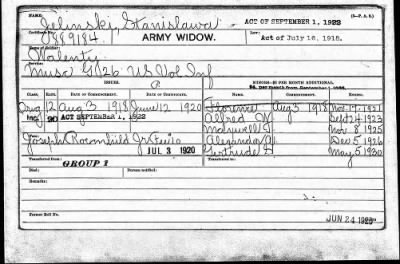 (3—P. A. B.)
Jelinski, Stanislawa ACT OF SEPTEMBER 1, 1922
Certificate No. Name of Pensioner.
889184 ARMY WIDOW. Law: Act of July 16, 1918.
Name of Soldier:
Walenty
Service:
Musc G/126 US Vol Inf
ISSUES. MINORS—$2 PER MONTH ADDITIONAL.
CLASS. RATE. DATE OF COMMENCEMENT. DATE OF CERTIFICATE. NAMES. COMMENCEMENT. ENDING.
Orig 12 Aug 3 1918 June 12 1920 Florence Aug 3 1918 Nov 17 1921
Inc. 20 ACT SEPTEMBER 1, 1922 Alfred W. Sept 24 1923
Maxwell J. Nov 8 1925
Joseph Alexander A. Dec 5 1926
JUL 3 1920 Gertrude May 5 1930
Transferred from
GROUP 1
Died: Person notified:
Remarks:
Former Roll No. JUN 24